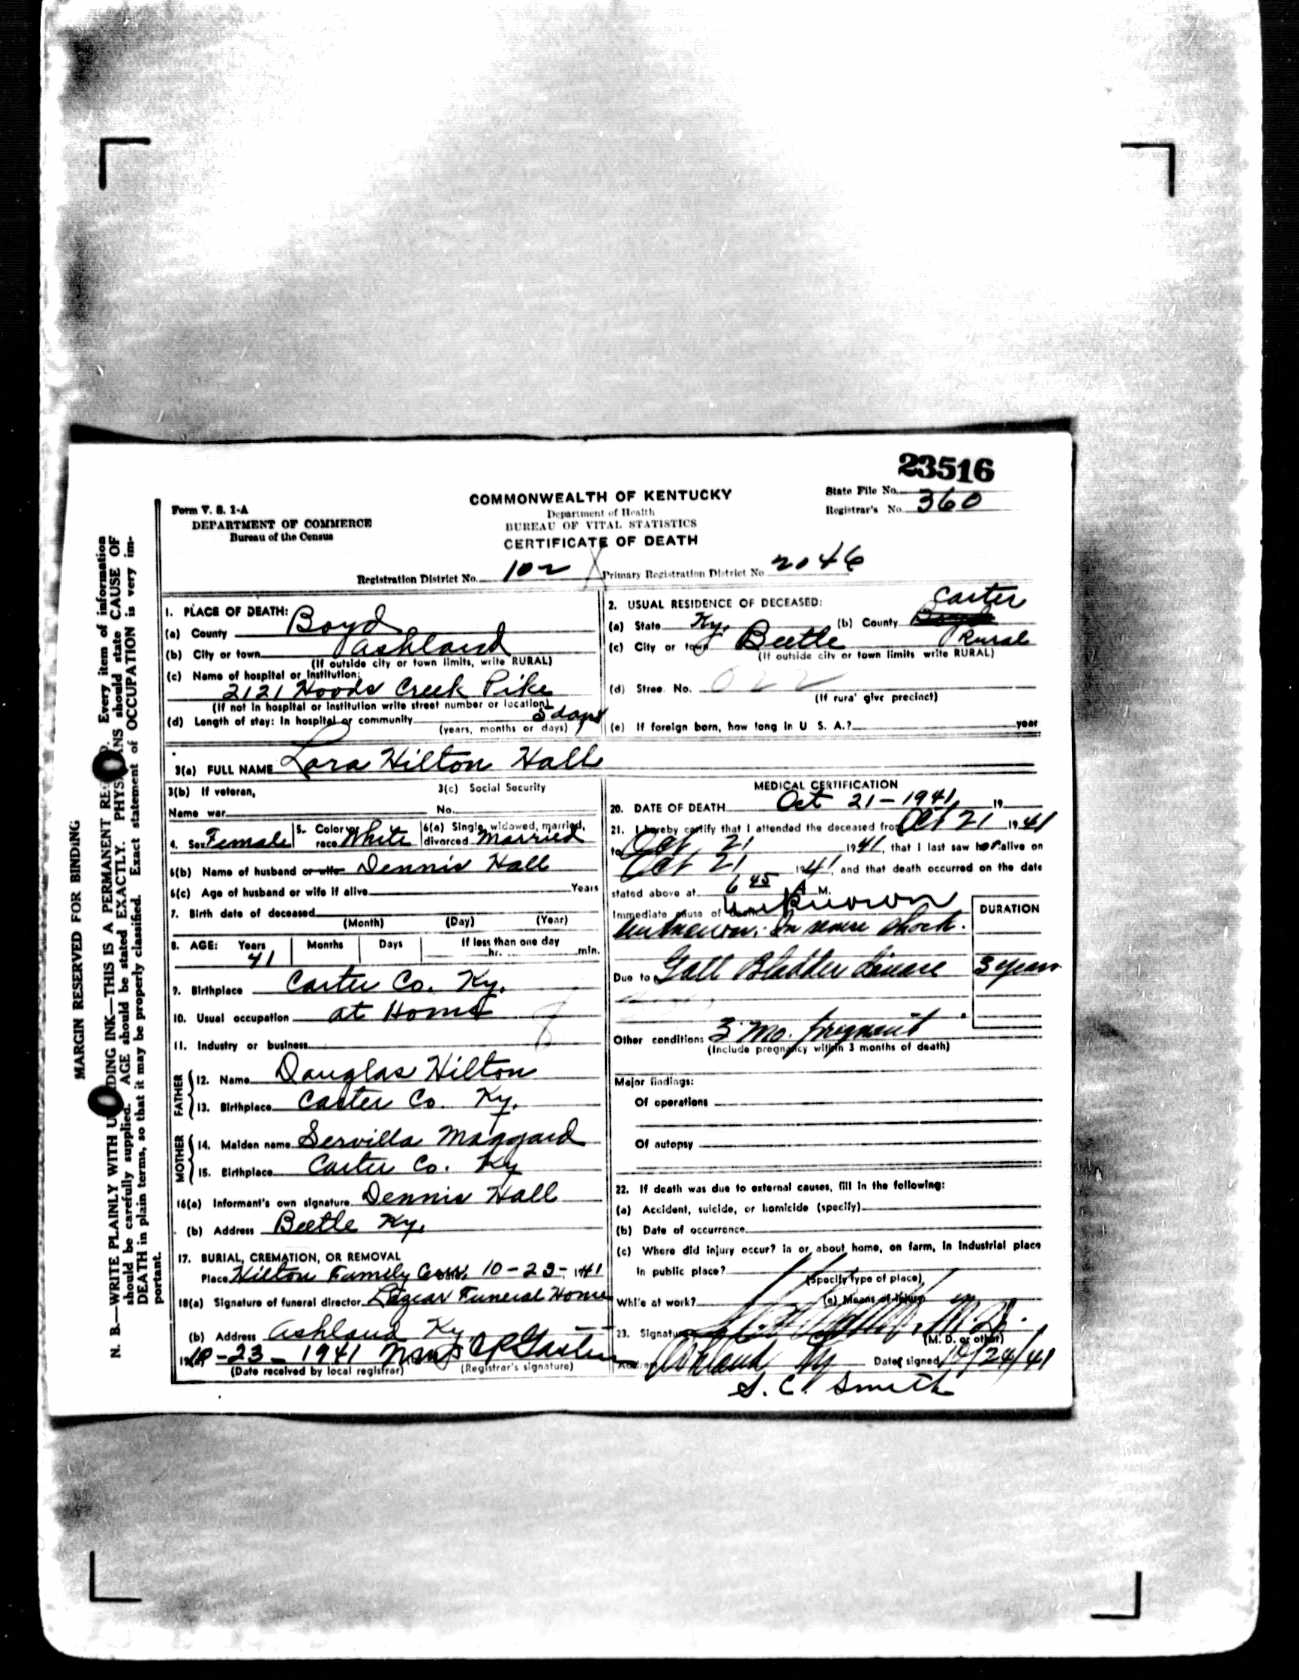 23516
Form V. S. 1-A
DEPARTMENT OF COMMERCE
Bureau of the Census
COMMONWEALTH OF KENTUCKY
Department of Health
BUREAU OF VITAL STATISTICS
CERTIFICATE OF DEATH
State File No.
Registrar's No. 360
Registration District No. 102
Primary Registration District No. 2046
1. PLACE OF DEATH:
(a) County Boyd
(b) City or town Ashland
(If outside city or town limits, write RURAL)
(c) Name of hospital or institution:
2121 Hoods Creek Pike
(If not in hospital or institution write street number or location)
(d) Length of stay: In hospital or community 5 days
(years, months or days)
2. USUAL RESIDENCE OF DECEASED:
Carter
(a) State Ky. (b) County Boyd
(c) City or town Beetle Rural
(If outside city or town limits write RURAL)
(d) Stree. No.
(If rura' give precinct)
(e) If foreign born, how long in U S. A.? year
3(a) FULL NAME Lara Hilton Hall
3(b) If veteran,
Name war
3(c) Social Security
No.
4. Sex Female 5. Color or race White 6(a) Single, widowed, married, divorced Married
6(b) Name of husband or wife Dennis Hall
6(c) Age of husband or wife if alive Years
7. Birth date of deceased
(Month) (Day) (Year)
8. AGE: Years Months Days If less than one day
41 hr. min.
9. Birthplace Carter Co. Ky.
10. Usual occupation at Home
11. Industry or business
FATHER
12. Name Douglas Hilton
13. Birthplace Carter Co Ky.
MOTHER
14. Maiden name Servilla Maggard
15. Birthplace Carter Co. Ky
16(a) Informant's own signature Dennis Hall
(b) Address Beetle Ky.
17. BURIAL, CREMATION, OR REMOVAL
Place Hilton Family Cem. 10-23-1941
18(a) Signature of funeral director Lazear Funeral Home
(b) Address Ashland Ky
19. 10-23-1941
(Date received by local registrar) (Registrar's signature)
MEDICAL CERTIFICATION
20. DATE OF DEATH Oct 21-1941 19
21. I hereby certify that I attended the deceased from Oct 21 1941
to Oct 21 1941, that I last saw her alive on
Oct 21 1941, and that death occurred on the date
stated above at 6 45 A M.
Immediate cause of death unknown
unknown. In severe shock.
DURATION
Due to Gall Bladder disease 3 years
Other conditions 3 mo. pregnant
(Include pregnancy within 3 months of death)
Major findings:
Of operations
Of autopsy
22. If death was due to external causes, fill in the following:
(a) Accident, suicide, or homicide (specify)
(b) Date of occurrence
(c) Where did injury occur? in or about home, on farm, in industrial place
in public place?
(Specify type of place)
Whi'e at work? (e) Means of injury
23. Signature M.D.
(M. D. or other)
Address Ashland Ky Date signed 10/24/41
S. C. Smith
MARGIN RESERVED FOR BINDING
N. B.—WRITE PLAINLY WITH UNFADING INK—THIS IS A PERMANENT RECORD. Every item of information
should be carefully supplied. AGE should be stated EXACTLY. PHYSICIANS should state CAUSE OF
DEATH in plain terms, so that it may be properly classified. Exact statement of OCCUPATION is very im-
portant.